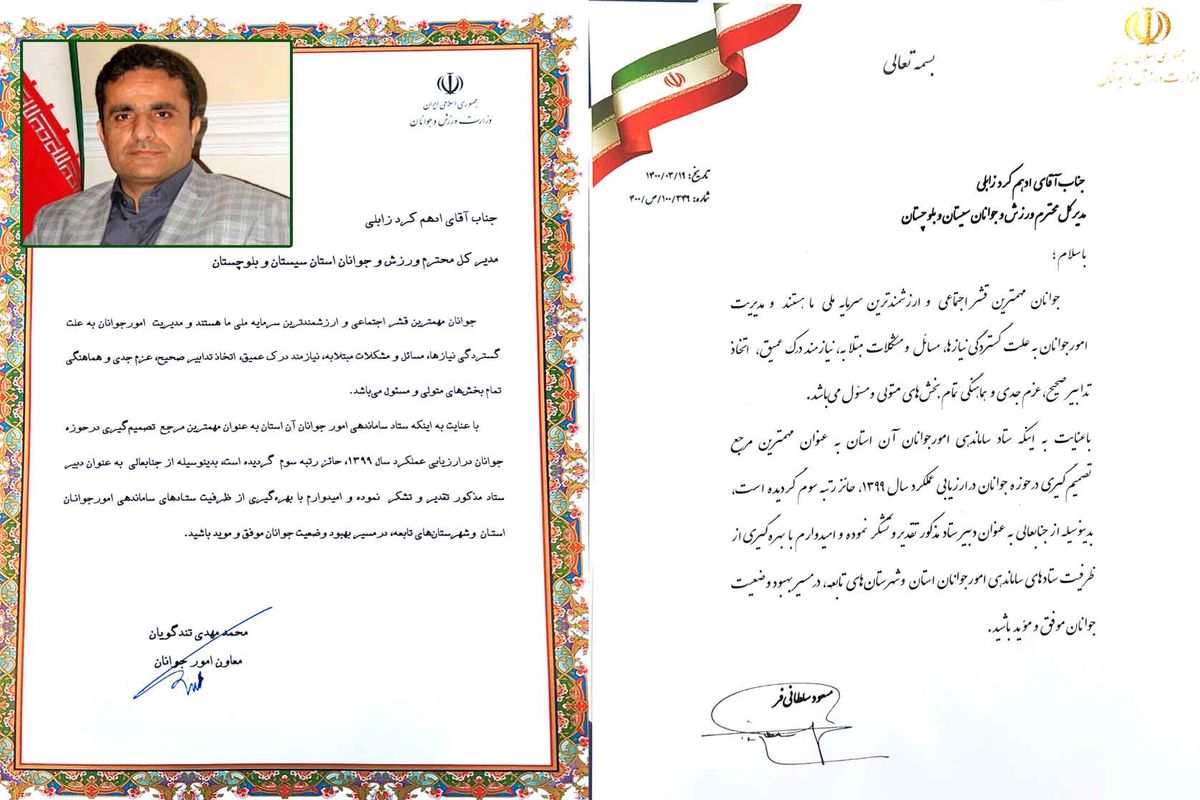 جمهوری اسلامی ایران
وزارت ورزش و جوانان
جناب آقای ادهم کرد زابلی
مدیر کل محترم ورزش و جوانان استان سیستان و بلوچستان
جوانان مهمترین قشر اجتماعی و ارزشمندترین سرمایه ملی ما هستند و مدیریت امورجوانان به علت
گستردگی نیازها، مسائل و مشکلات مبتلابه، نیازمند درک عمیق، اتخاذ تدابیر صحیح، عزم جدی و هماهنگی
تمام بخش‌های متولی و مسئول می‌باشد.
با عنایت به اینکه ستاد ساماندهی امور جوانان آن استان به عنوان مهمترین مرجع تصمیم‌گیری در حوزه
جوانان در ارزیابی عملکرد سال ۱۳۹۹، حائز رتبه سوم گردیده است، بدینوسیله از جنابعالی به عنوان دبیر
ستاد مذکور تقدیر و تشکر نموده و امیدوارم با بهره‌گیری از ظرفیت ستادهای ساماندهی امورجوانان
استان وشهرستان‌های تابعه، درمسیر بهبود وضعیت جوانان موفق و موید باشید.
محمد مهدی تندگویان
معاون امور جوانان
جمهوری اسلامی ایران
وزارت ورزش و جوانان
بسمه تعالی
تاریخ: ۱۴۰۰/۰۳/۱۹
شماره: ۴۰۰/ص/۱۰۰/۳۴۹
جناب آقای ادهم کرد زابلی
مدیر کل محترم ورزش و جوانان سیستان و بلوچستان
باسلام؛
جوانان مهمترین قشر اجتماعی و ارزشمندترین سرمایه ملی ما هستند و مدیریت
امورجوانان به علت گستردگی نیازها، مسائل و مشکلات مبتلا به، نیازمند درک عمیق، اتخاذ
تدابیر صحیح، عزم جدی و هماهنگی تمام بخش‌های متولی و مسئول می‌باشد.
باعنایت به اینکه ستاد ساماندهی امورجوانان آن استان به عنوان مهمترین مرجع
تصمیم گیری درحوزه جوانان درارزیابی عملکرد سال ۱۳۹۹، حائز رتبه سوم گردیده است،
بدینوسیله از جنابعالی به عنوان دبیر ستاد مذکور تقدیر و تشکر نموده و امیدوارم با بهره گیری از
ظرفیت ستادهای ساماندهی امورجوانان استان وشهرستان‌های تابعه، درمسیر بهبود وضعیت
جوانان موفق و مؤید باشید.
مسعود سلطانی فر